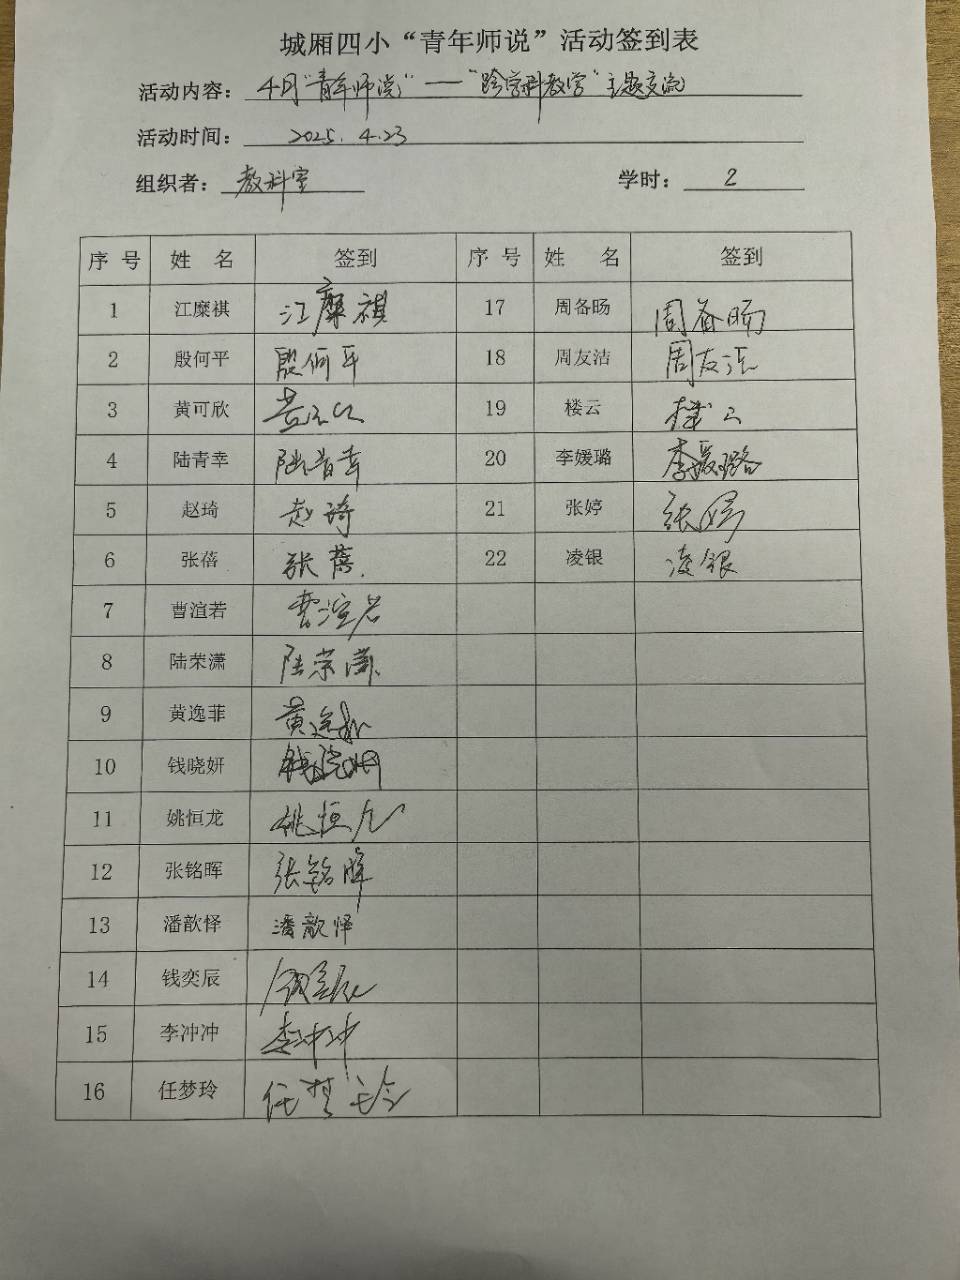 城厢四小“青年师说”活动签到表
活动内容：4月“青年师说”——“跨学科教学”主题交流
活动时间：2025.4.23
组织者：教科室 学时：2
序号 姓名 签到 序号 姓名 签到
1 江糜祺 江糜祺 17 周备旸 周备旸
2 殷何平 殷何平 18 周友洁 周友洁
3 黄可欣 黄可欣 19 楼云 楼云
4 陆青幸 陆青幸 20 李媛璐 李媛璐
5 赵琦 赵琦 21 张婷 张婷
6 张蓓 张蓓 22 凌银 凌银
7 曹渲若 曹渲若
8 陆荣潇 陆荣潇
9 黄逸菲 黄逸菲
10 钱晓妍 钱晓妍
11 姚恒龙 姚恒龙
12 张铭晖 张铭晖
13 潘歆怿 潘歆怿
14 钱奕辰 钱奕辰
15 李冲冲 李冲冲
16 任梦玲 任梦玲